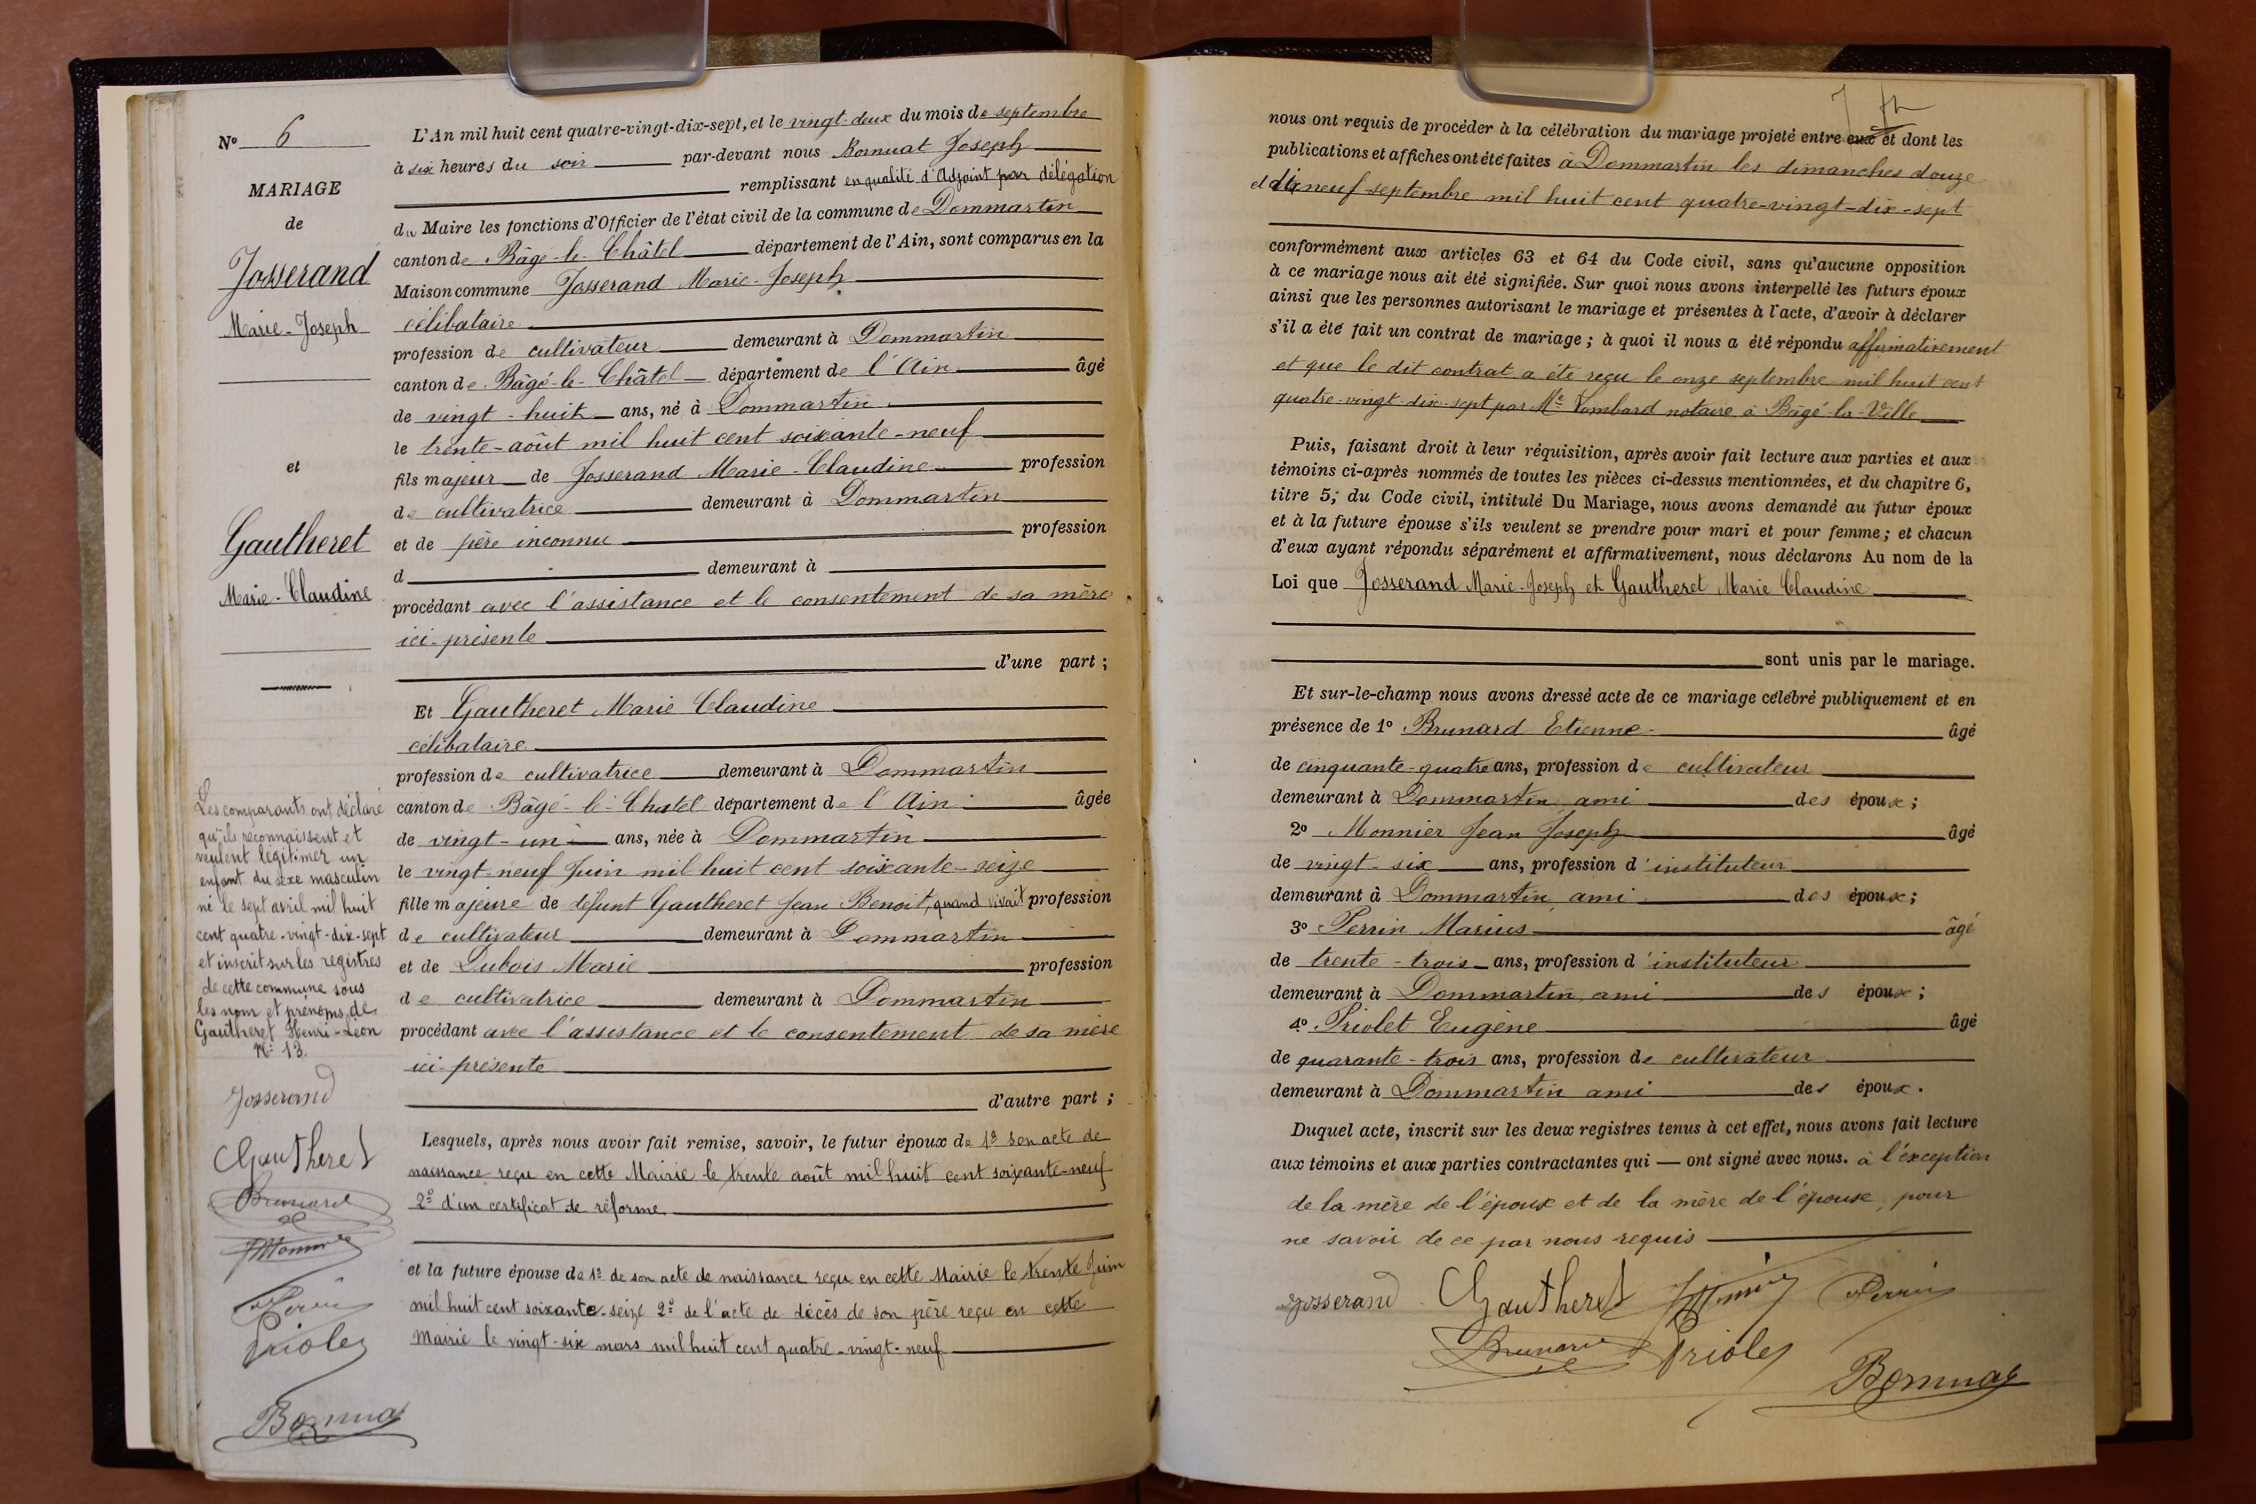 Nº 6
MARIAGE
de
Josserand
Marie-Joseph
et
Gautheret
Marie-Claudine
Les comparants ont déclaré
qu'ils reconnaissent et
veulent légitimer un
enfant du sexe masculin
né le sept avril mil huit
cent quatre-vingt-dix-sept
et inscrit sur les registres
de cette commune sous
les nom et prénoms de
Gautheret Henri-Léon
Nº 13.
Josserand
Gautheret
Brunard
Perrin
Priolet
L'An mil huit cent quatre-vingt-dix-sept, et le vingt-deux du mois de septembre
à six heures du soir par-devant nous Joseph
remplissant en qualité d'Adjoint par délégation
du Maire les fonctions d'Officier de l'état civil de la commune de Dommartin
canton de Bâgé-le-Châtel département de l'Ain, sont comparus en la
Maison commune Josserand Marie-Joseph
célibataire
profession de cultivateur demeurant à Dommartin
canton de Bâgé-le-Châtel département de l'Ain âgé
de vingt-huit ans, né à Dommartin
le trente-août mil huit cent soixante-neuf
fils majeur de Josserand Marie-Claudine profession
de cultivatrice demeurant à Dommartin
et de père inconnu profession
d demeurant à
procédant avec l'assistance et le consentement de sa mère
ici-présente
d'une part ;
Et Gautheret Marie Claudine
célibataire
profession de cultivatrice demeurant à Dommartin
canton de Bâgé-le-Chatel département de l'Ain âgée
de vingt-un ans, née à Dommartin
le vingt-neuf Juin mil huit cent soixante-seize
fille majeure de défunt Gautheret Jean Benoit, quand vivait profession
de cultivateur demeurant à Dommartin
et de Dubois Marie profession
de cultivatrice demeurant à Dommartin
procédant avec l'assistance et le consentement de sa mère
ici-présente
d'autre part ;
Lesquels, après nous avoir fait remise, savoir, le futur époux de 1º son acte de
naissance reçu en cette Mairie le trente août mil huit cent soixante-neuf
2º d'un certificat de réforme
et la future épouse de 1º de son acte de naissance reçu en cette Mairie le trente Juin
mil huit cent soixante-seize 2º de l'acte de décès de son père reçu en cette
Mairie le vingt-six mars mil huit cent quatre-vingt-neuf
nous ont requis de procéder à la célébration du mariage projeté entre eux et dont les
publications et affiches ont été faites à Dommartin les dimanches douze
et dix neuf septembre mil huit cent quatre-vingt-dix-sept
conformément aux articles 63 et 64 du Code civil, sans qu'aucune opposition
à ce mariage nous ait été signifiée. Sur quoi nous avons interpellé les futurs époux
ainsi que les personnes autorisant le mariage et présentes à l'acte, d'avoir à déclarer
s'il a été fait un contrat de mariage ; à quoi il nous a été répondu affirmativement
et que le dit contrat a été reçu le onze septembre mil huit cent
quatre-vingt-dix-sept par Me Lombard notaire à Bâgé-la-Ville
Puis, faisant droit à leur réquisition, après avoir fait lecture aux parties et aux
témoins ci-après nommés de toutes les pièces ci-dessus mentionnées, et du chapitre 6,
titre 5, du Code civil, intitulé Du Mariage, nous avons demandé au futur époux
et à la future épouse s'ils veulent se prendre pour mari et pour femme ; et chacun
d'eux ayant répondu séparément et affirmativement, nous déclarons Au nom de la
Loi que Josserand Marie-Joseph et Gautheret Marie Claudine
sont unis par le mariage.
Et sur-le-champ nous avons dressé acte de ce mariage célébré publiquement et en
présence de 1º Brunard Etienne âgé
de cinquante-quatre ans, profession de cultivateur
demeurant à Dommartin ami des époux ;
2º Monnier Jean Joseph âgé
de vingt-six ans, profession d'instituteur
demeurant à Dommartin, ami des époux ;
3º Perrin Marius âgé
de trente-trois ans, profession d'instituteur
demeurant à Dommartin, ami des époux ;
4º Priolet Eugène âgé
de quarante-trois ans, profession de cultivateur
demeurant à Dommartin ami des époux.
Duquel acte, inscrit sur les deux registres tenus à cet effet, nous avons fait lecture
aux témoins et aux parties contractantes qui — ont signé avec nous. à l'exception
de la mère de l'époux et de la mère de l'épouse, pour
ne savoir de ce par nous requis
Josserand Gautheret Perrin
Brunard Priolet